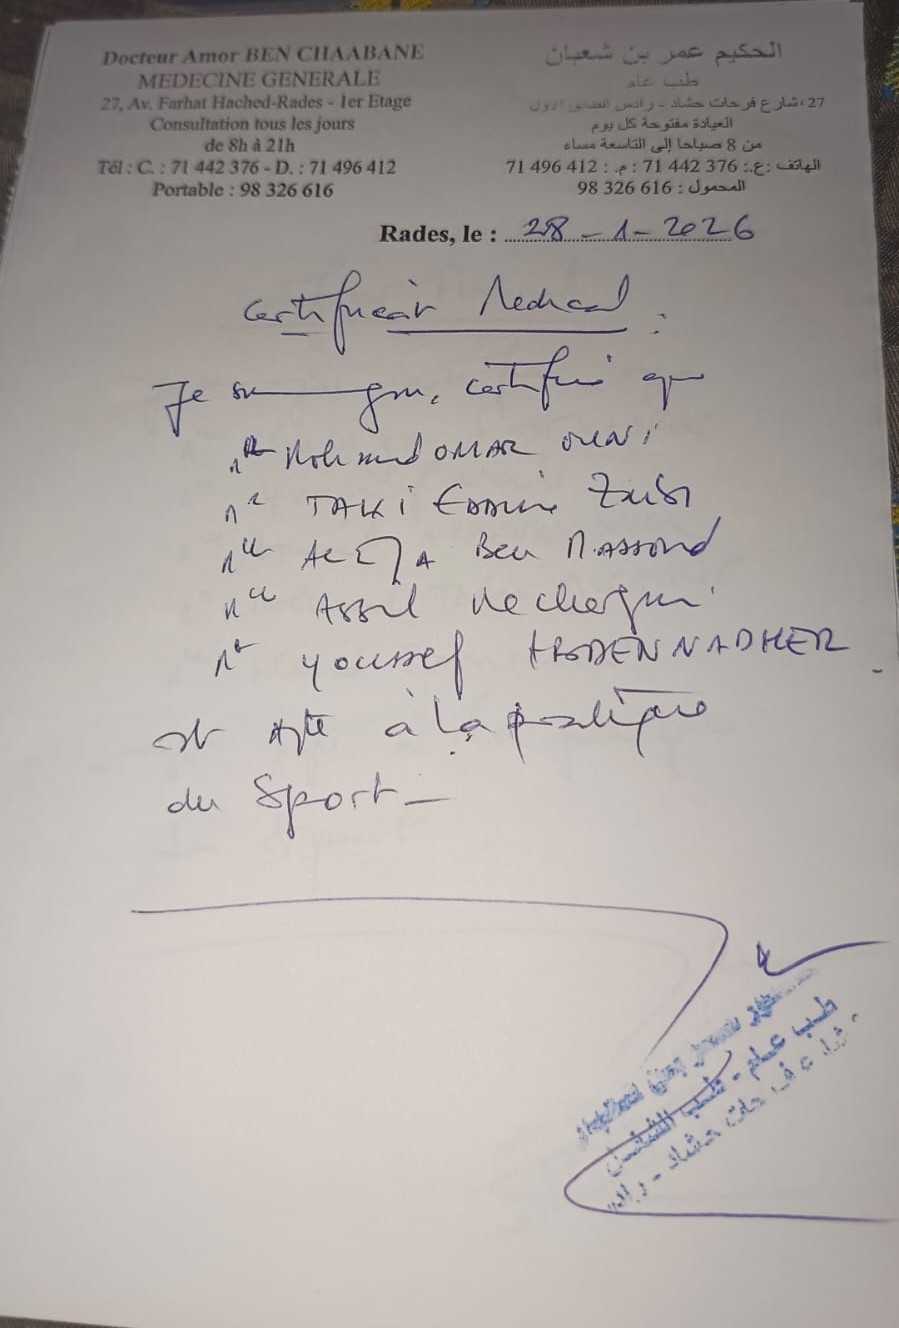 Docteur Amor BEN CHAABANE
MEDECINE GENERALE
27, Av. Farhat Hached-Rades - 1er Etage
Consultation tous les jours
de 8h à 21h
Tél : C. : 71 442 376 - D. : 71 496 412
Portable : 98 326 616
الحكيم عمر بن شعبان
طب عام
27، شارع فرحات حشاد - رادس الطابق الاول
العيادة مفتوحة كل يوم
من 8 صباحا إلى التاسعة مساء
الهاتف :ع.: 71 442 376 : م. : 71 496 412
المحمول : 98 326 616
Rades, le : 28-1-2026
Certificat Medical :
Je certifie que
OMAR
TAKI Eddine
Ben
Assil
Youssef ABDENNADHER
est apte à la pratique
du Sport_
طب عام - طب
حشاد -